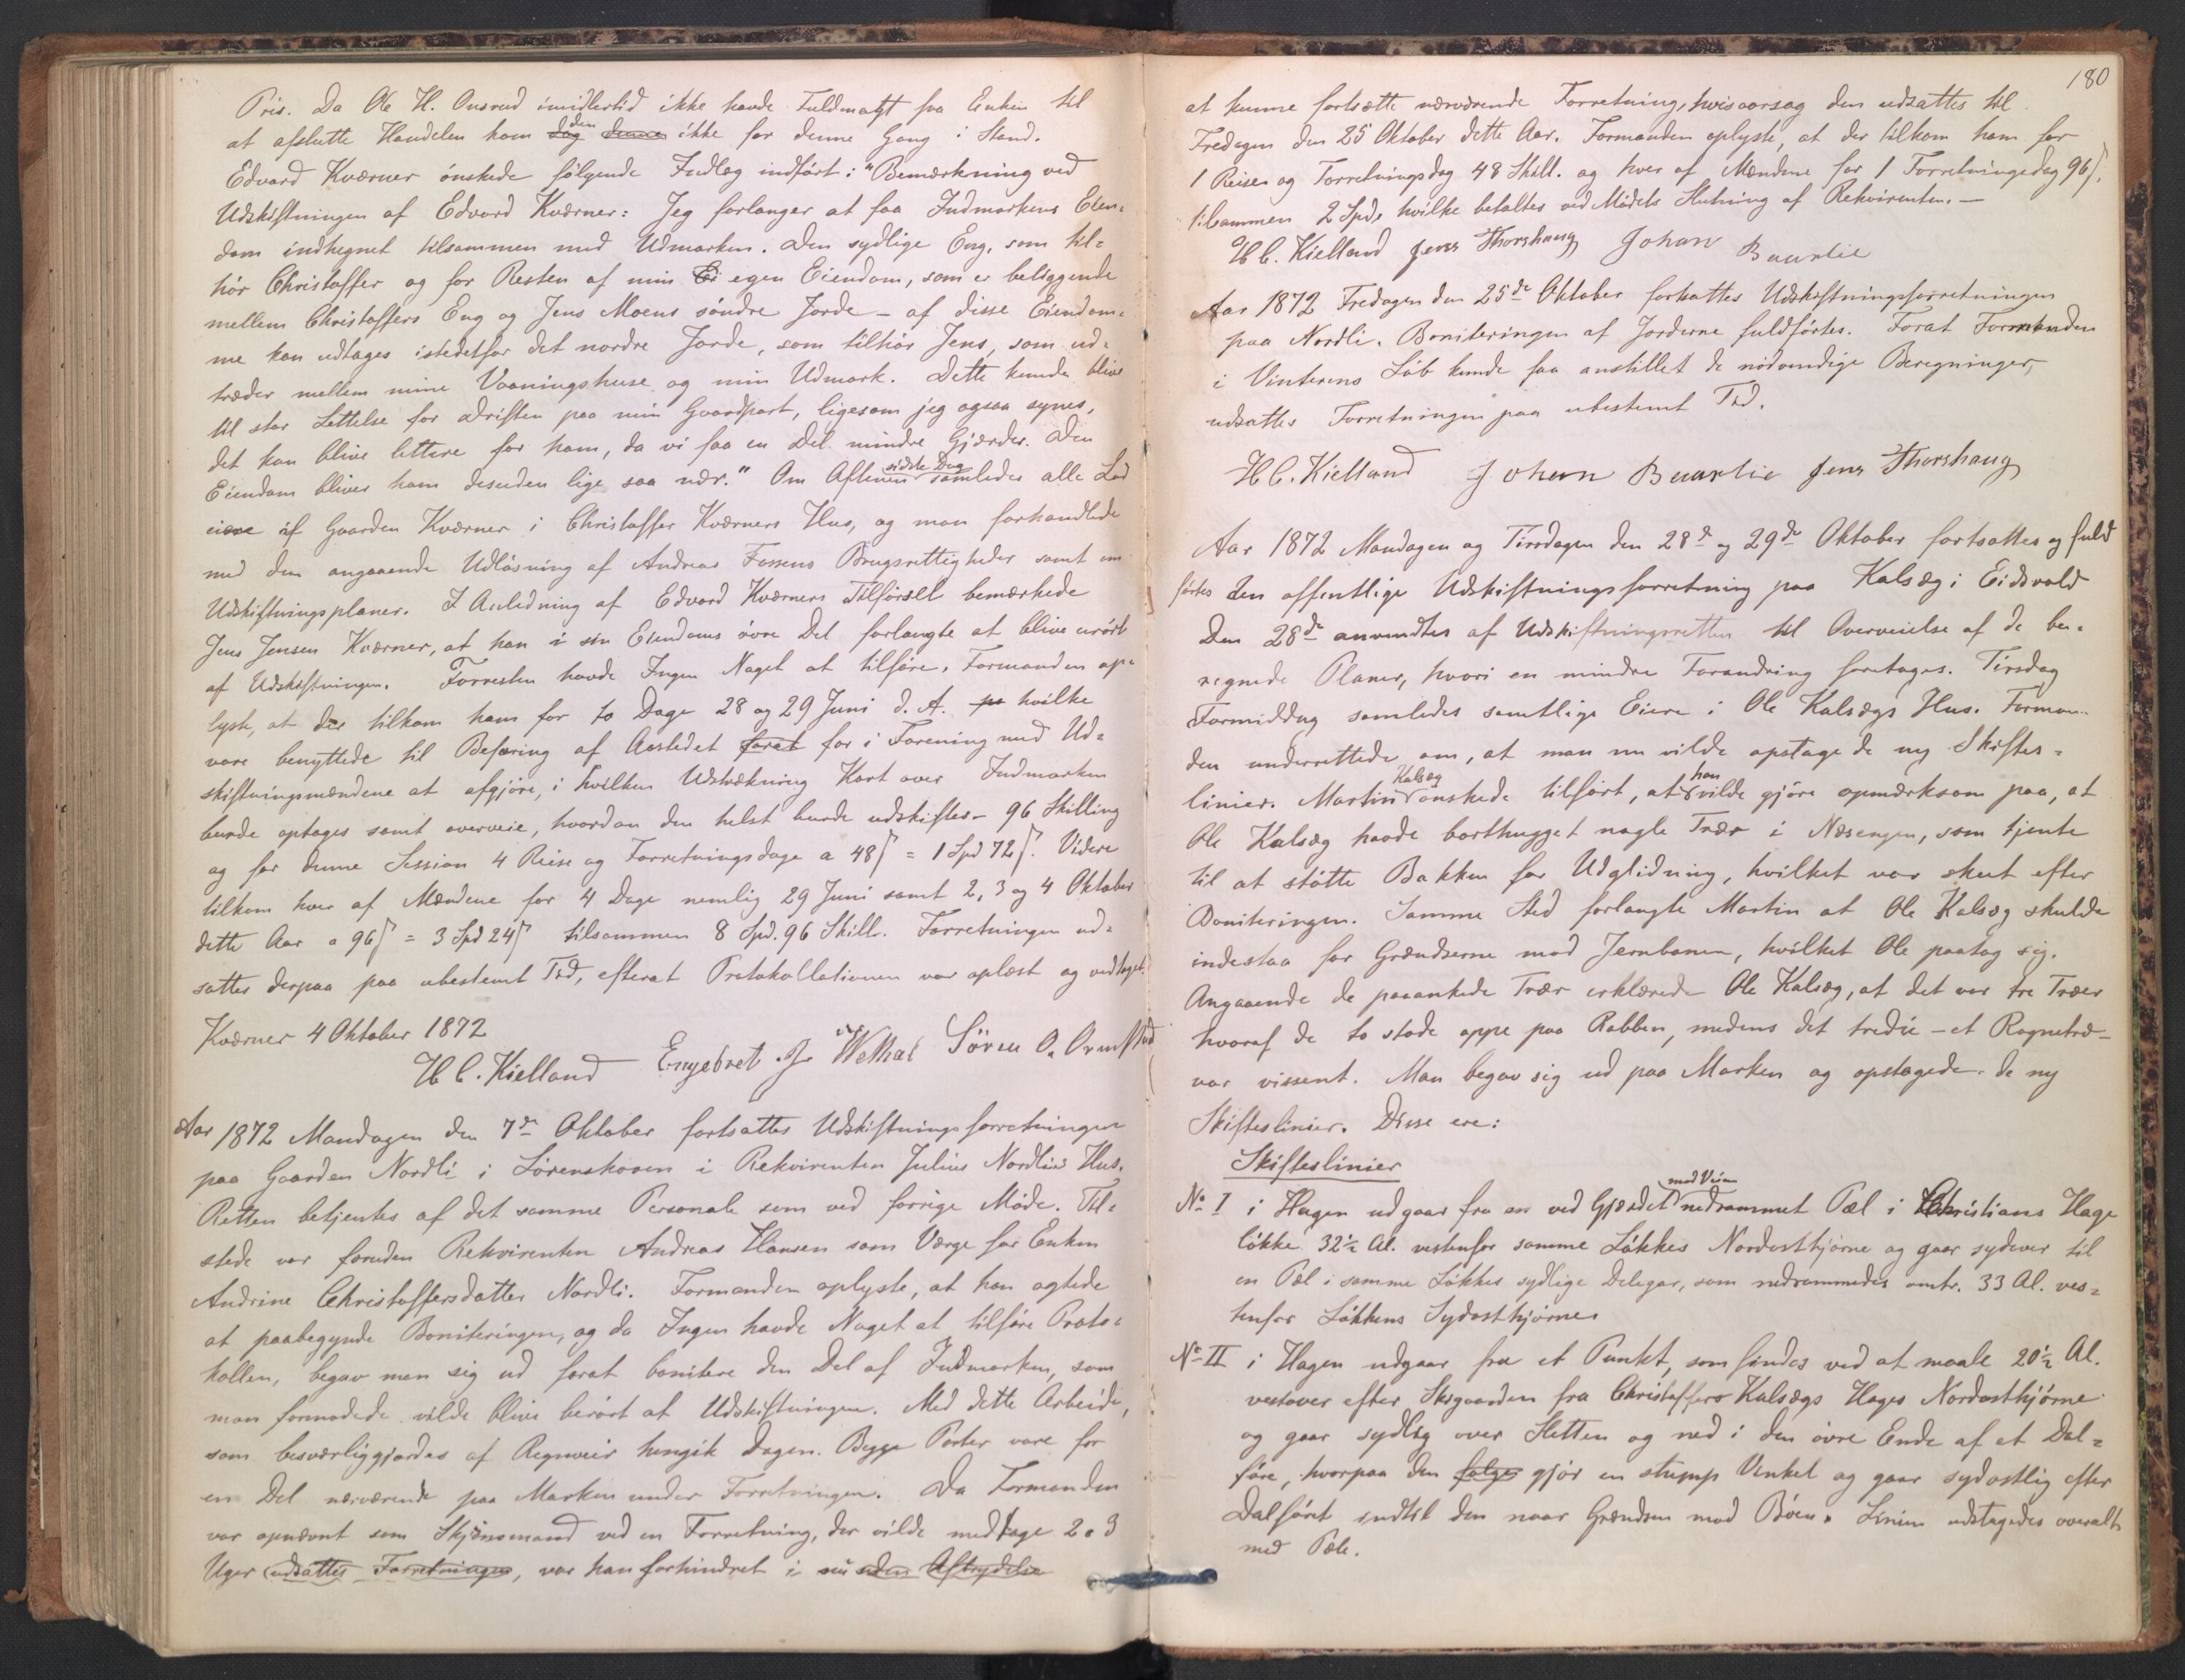 Pris. Da Ole H. Onsrud imidlertid ikke havde Fuldmagt fra Enken til
at afslutte Handelen kom den ikke for denne Gang i Stand.
Edvard Kværner ønskede følgende Indlæg indført: "Bemærkning ved
Udskiftningen af Edvard Kværner: Jeg forlanger at faa Indmarkens Eien=
dom indhegnet tilsammen med Udmarken. Den sydlige Eng, som til=
hør Christoffer og for Resten af min egen Eiendom, som er beliggende
mellem Christoffers Eng og Jens Moens søndre Jorde – af disse Eiendom=
me kan udtages istedetfor det nordre Jorde, som tilhør Jens, som ud=
træder mellem mine Vaaningshuse og min Udmark. Dette kunde blive
til stor Lettelse for Driften paa min Gaardpart, ligesom jeg ogsaa synes,
det kan blive lettere for ham, da vi faa en Del mindre Gjærder. Den
Eiendom bliver ham desuden lige saa nær." Om Aftenen sidste Dag samledes alle Lod
eiere af Gaarden Kværner i Christoffer Kværners Hus, og man forhandlede
med dem angaaende Udløsning af Andreas Fossens Brugsrettigheder samt om
Udskiftningsplaner. I Anledning af Edvard Kværners Tilførsel bemærkede
Jens Jensen Kværner, at han i sin Eiendoms øvre Del forlangte at blive urørt
af Udskiftningen. Forresten havde Ingen Noget at tilføre. Formanden op=
lyste, at der tilkom ham for to Dage 28 og 29 Juni d. A. hvilke
vare benyttede til Befaring af Aastedet forat for i Forening med Ud=
skiftningsmændene at afgjøre, i hvilken Udstrækning Kart over Indmarken
burde optages samt overveie, hvordan den helst burde udskiftes – 96 Skilling
og for denne Session 4 Reise og Forretningsdage a 48ſ = 1 Spd 72ſ. Videre
tilkom hver af Mændene for 4 Dage nemlig 29 Juni samt 2, 3 og 4 Oktober
dette Aar a 96ſ = 3 Spd 24ſ tilsammen 8 Spd. 96 Skill. Forretningen ud=
sattes derpaa paa ubestemt Tid, efterat Protokollationen var oplæst og vedtaget.
Kværner 4 Oktober 1872
H C. Kielland Engebret J. Wethal Sören O.
Aar 1872 Mandagen den 7de Oktober fortsattes Udskiftningsforretningen
paa Gaarden Nordli i Sørenskoven i Rekvirenten Julius Nordlis Hus.
Retten betjentes af det samme Personale som ved forrige Møde. Til=
stede var foruden Rekvirenten Andreas Hansen som Værge for Enken
Andrine Christoffersdatter Nordli. Formanden oplyste, at han agtede
at paabegynde Boniteringen, og da Ingen havde Noget at tilføre Proto=
kollen, begav man sig ud forat bonitere den Del af Indmarken, som
man formodede vilde blive berørt af Udskiftningen. Med dette Arbeide,
som besværliggjordes af Regnveir hengik Dagen. Begge Parter vare for
en Del nærværende paa Marken under Forretningen. Da Formanden
var opnævnt som Skjønsmand ved en Forretning, der vilde medtage 2 a 3
Uger udsattes Forretningen, var han forhindret i nu uden Afbrydelse
180
at kunne fortsætte nærværende Forretning, hvisaarsag den udsattes til
Fredagen den 25 Oktober dette Aar. Formanden oplyste, at der tilkom ham for
1 Reise og Forretningsdag 48 Skill. og hver af Mændene for 1 Forretningsdag 96ſ,
tilsammen 2 Spd, hvilke betaltes ved Mödets Slutning af Rekvirenten. –
H C. Kielland Jens Thorshaug Johan Buurlie
Aar 1872 Fredagen den 25de Oktober fortsattes Udskiftningsforretningen
paa Nordli. Boniteringen af Jorderne fuldførtes. Forat Formanden
i Vinterens Løb kunde faa anstillet de nødvendige Beregninger,
udsattes Forretningen paa ubestemt Tid.
H C. Kielland Johan Buurlie Jens Thorshaug
Aar 1872 Mandagen og Tirsdagen den 28de og 29de Oktober fortsattes og fuld
førtes den offentlige Udskiftningsforretning paa Kalsæg i Eidsvold
Den 28de anvendtes af Udskiftningsretten til Overveielse af de be=
regnede Planer, hvori en mindre Forandring foretages. Tirsdag
Formiddag samledes samtlige Eiere i Ole Kalsægs Hus. Forman=
den underrettede om, at man nu vilde opstage de ny Skiftes=
linier. Martin Kalsæg ønskede tilført, at han vilde gjøre opmærksom paa, at
Ole Kalsæg havde borthugget nogle Trær i Næsengen, som tjente
til at støtte Bakken for Udglidning, hvilket var skeet efter
Boniteringen. Samme Sted forlangte Martin at Ole Kalsæg skulde
indestaa for Grændserne mod Jernbanen, hvilket Ole paatog sig.
Angaaende de paaankede Trær erklærede Ole Kalsæg, at det var tre Træer
hvoraf de to stode oppe paa Rabben, medens det tredie – et Rognetræ –
var vissent. Man begav sig ud paa Marken og opstagede de ny
Skifteslinier. Disse ere:
Skifteslinier
No I i Hagen udgaar fra en ved Gjærdet mod Veien nedrammet Pæl i Christians Hage
løkke 32½ Al. vestenfor samme Løkkes Nordosthjørne og gaar sydover til
en Pæl i samme Løkkes sydlige Delegar, som nedrammedes omtr. 33 Al. ves=
tenfor Løkkens Sydosthjørne
No II i Hagen udgaar fra et Punkt, som findes ved at maale 20½ Al.
vestover efter Skigaarden fra Christoffers Kalsægs Hages Nordosthjørne
og gaar sydlig over Sletten og ned i den øvre Ende af et Dal=
føre, hvorpaa den følge gjør en stump Vinkel og gaar sydostlig efter
Dalføret indtil den naar Grændsen mod Bøen. Linien udstagedes overalt
med Pæle.